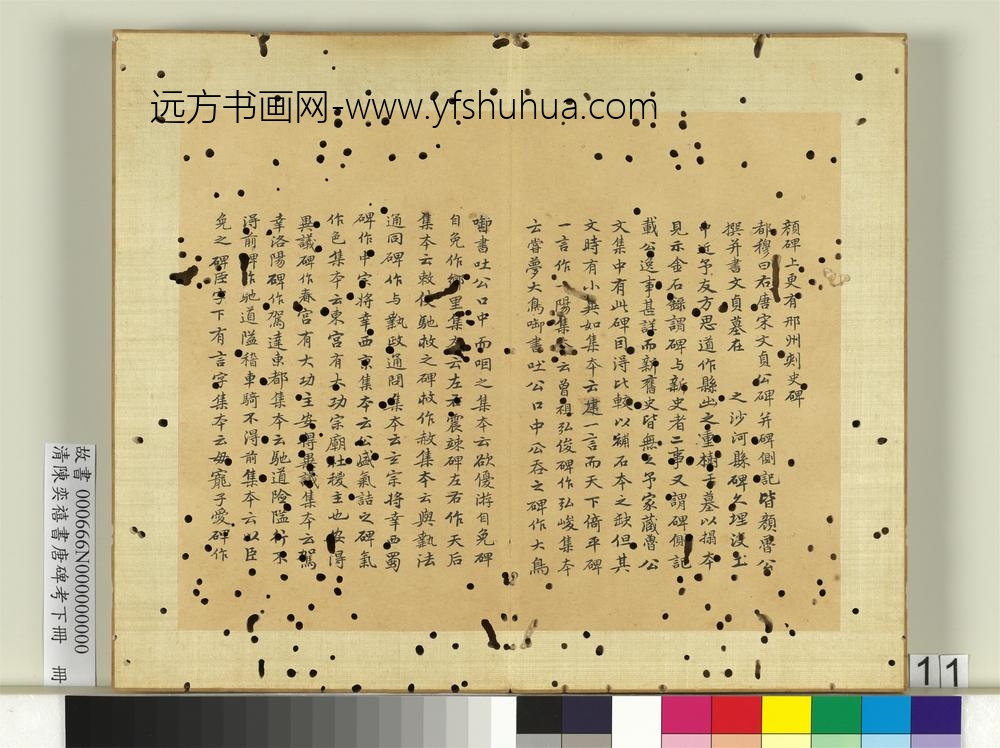 远方书画网-www.yfshuhua.com
顔碑上更有邢州刺史碑
都穆曰右唐宋文貞公碑并碑側記皆顔魯公
撰并書文貞墓在 之沙河縣碑久埋沒土
中近予友方思道作縣出之重樹于墓以搨本
見示金石錄謂碑与新史者二事又謂碑側記
載公逸事甚詳而新舊史皆無之予家藏魯公
文集中有此碑因得比較以補石本之缺但其
文時有小異如集本云建一言而天下倚平碑
一言作一陽集本云曾祖弘俊碑作弘峻集本
云嘗夢大鳥啣書吐公口中公吞之碑作大鳥
啣書吐公口中而咽之集本云欲優游自免碑
自免作鄉里集本云左右震竦碑左右作天后
集本云敕使馳救之碑救作赦集本云與執法
通同碑作与執政通同集本云玄宗將幸西蜀
碑作中宗將幸西京集本云公盛氣詰之碑氣
作色集本云東宮有大功宗廟社稷主也安得
異議碑作春宮有大功主安得異議集本云駕
幸洛陽碑作駕達東都集本云馳道險隘行不
得前碑作馳道隘稽車騎不得前集本云以臣
免之碑臣字下有言字集本云毋寵子愛碑作
故書 000666N000000000
清陳奕禧書唐碑考下冊 冊
11